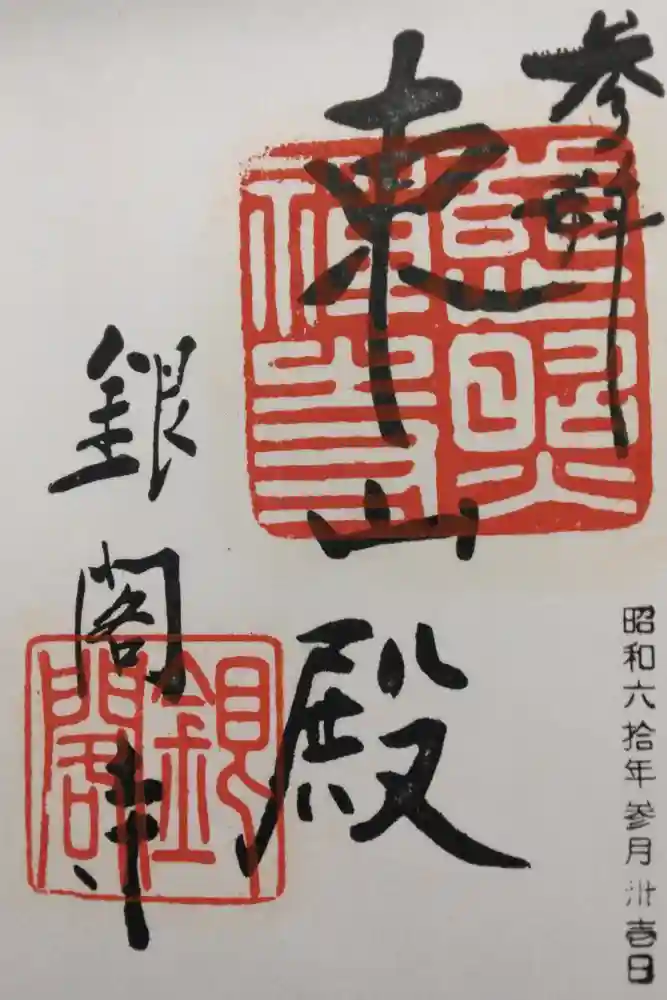 参拝
東山殿
慈照禅寺
昭和六拾年参月卅壱日
銀閣寺
銀閣